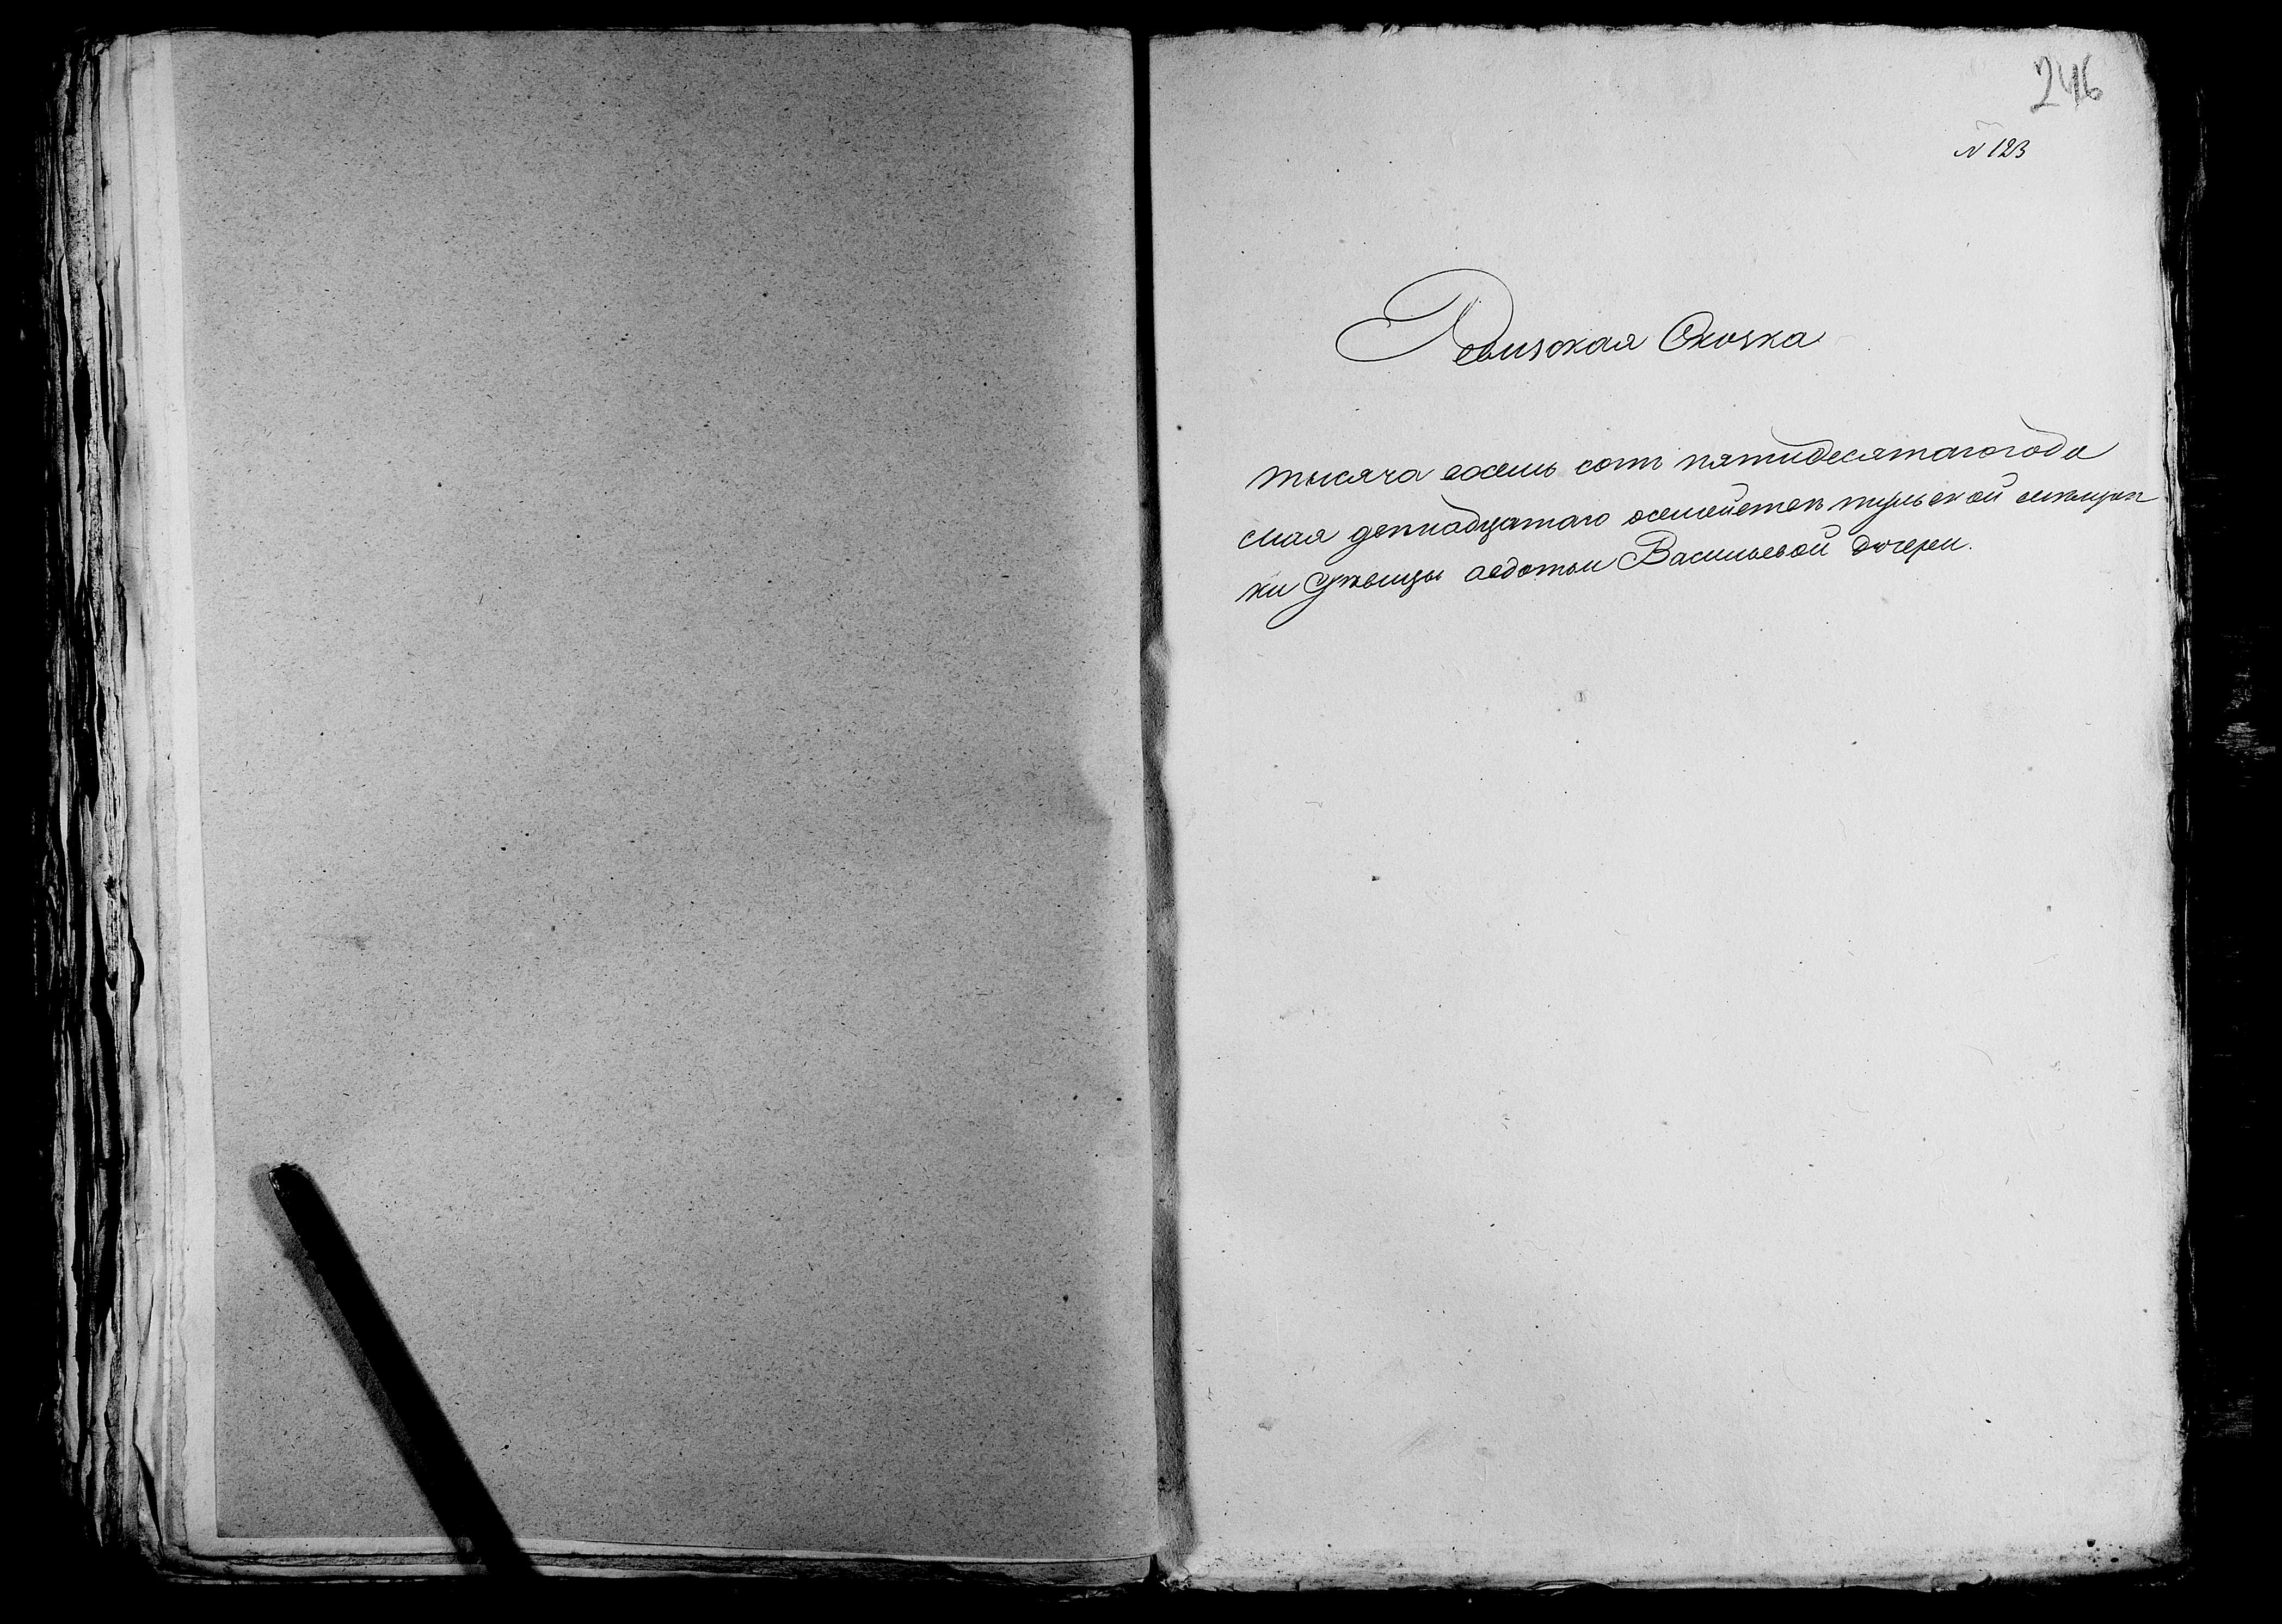 246
N 123
Ревизская Скаска
тысяча восемь сот пятидесятаго года
мая девнадцатаго тульской мещан
ки вдовицы авдотьи Васильевой дочери.